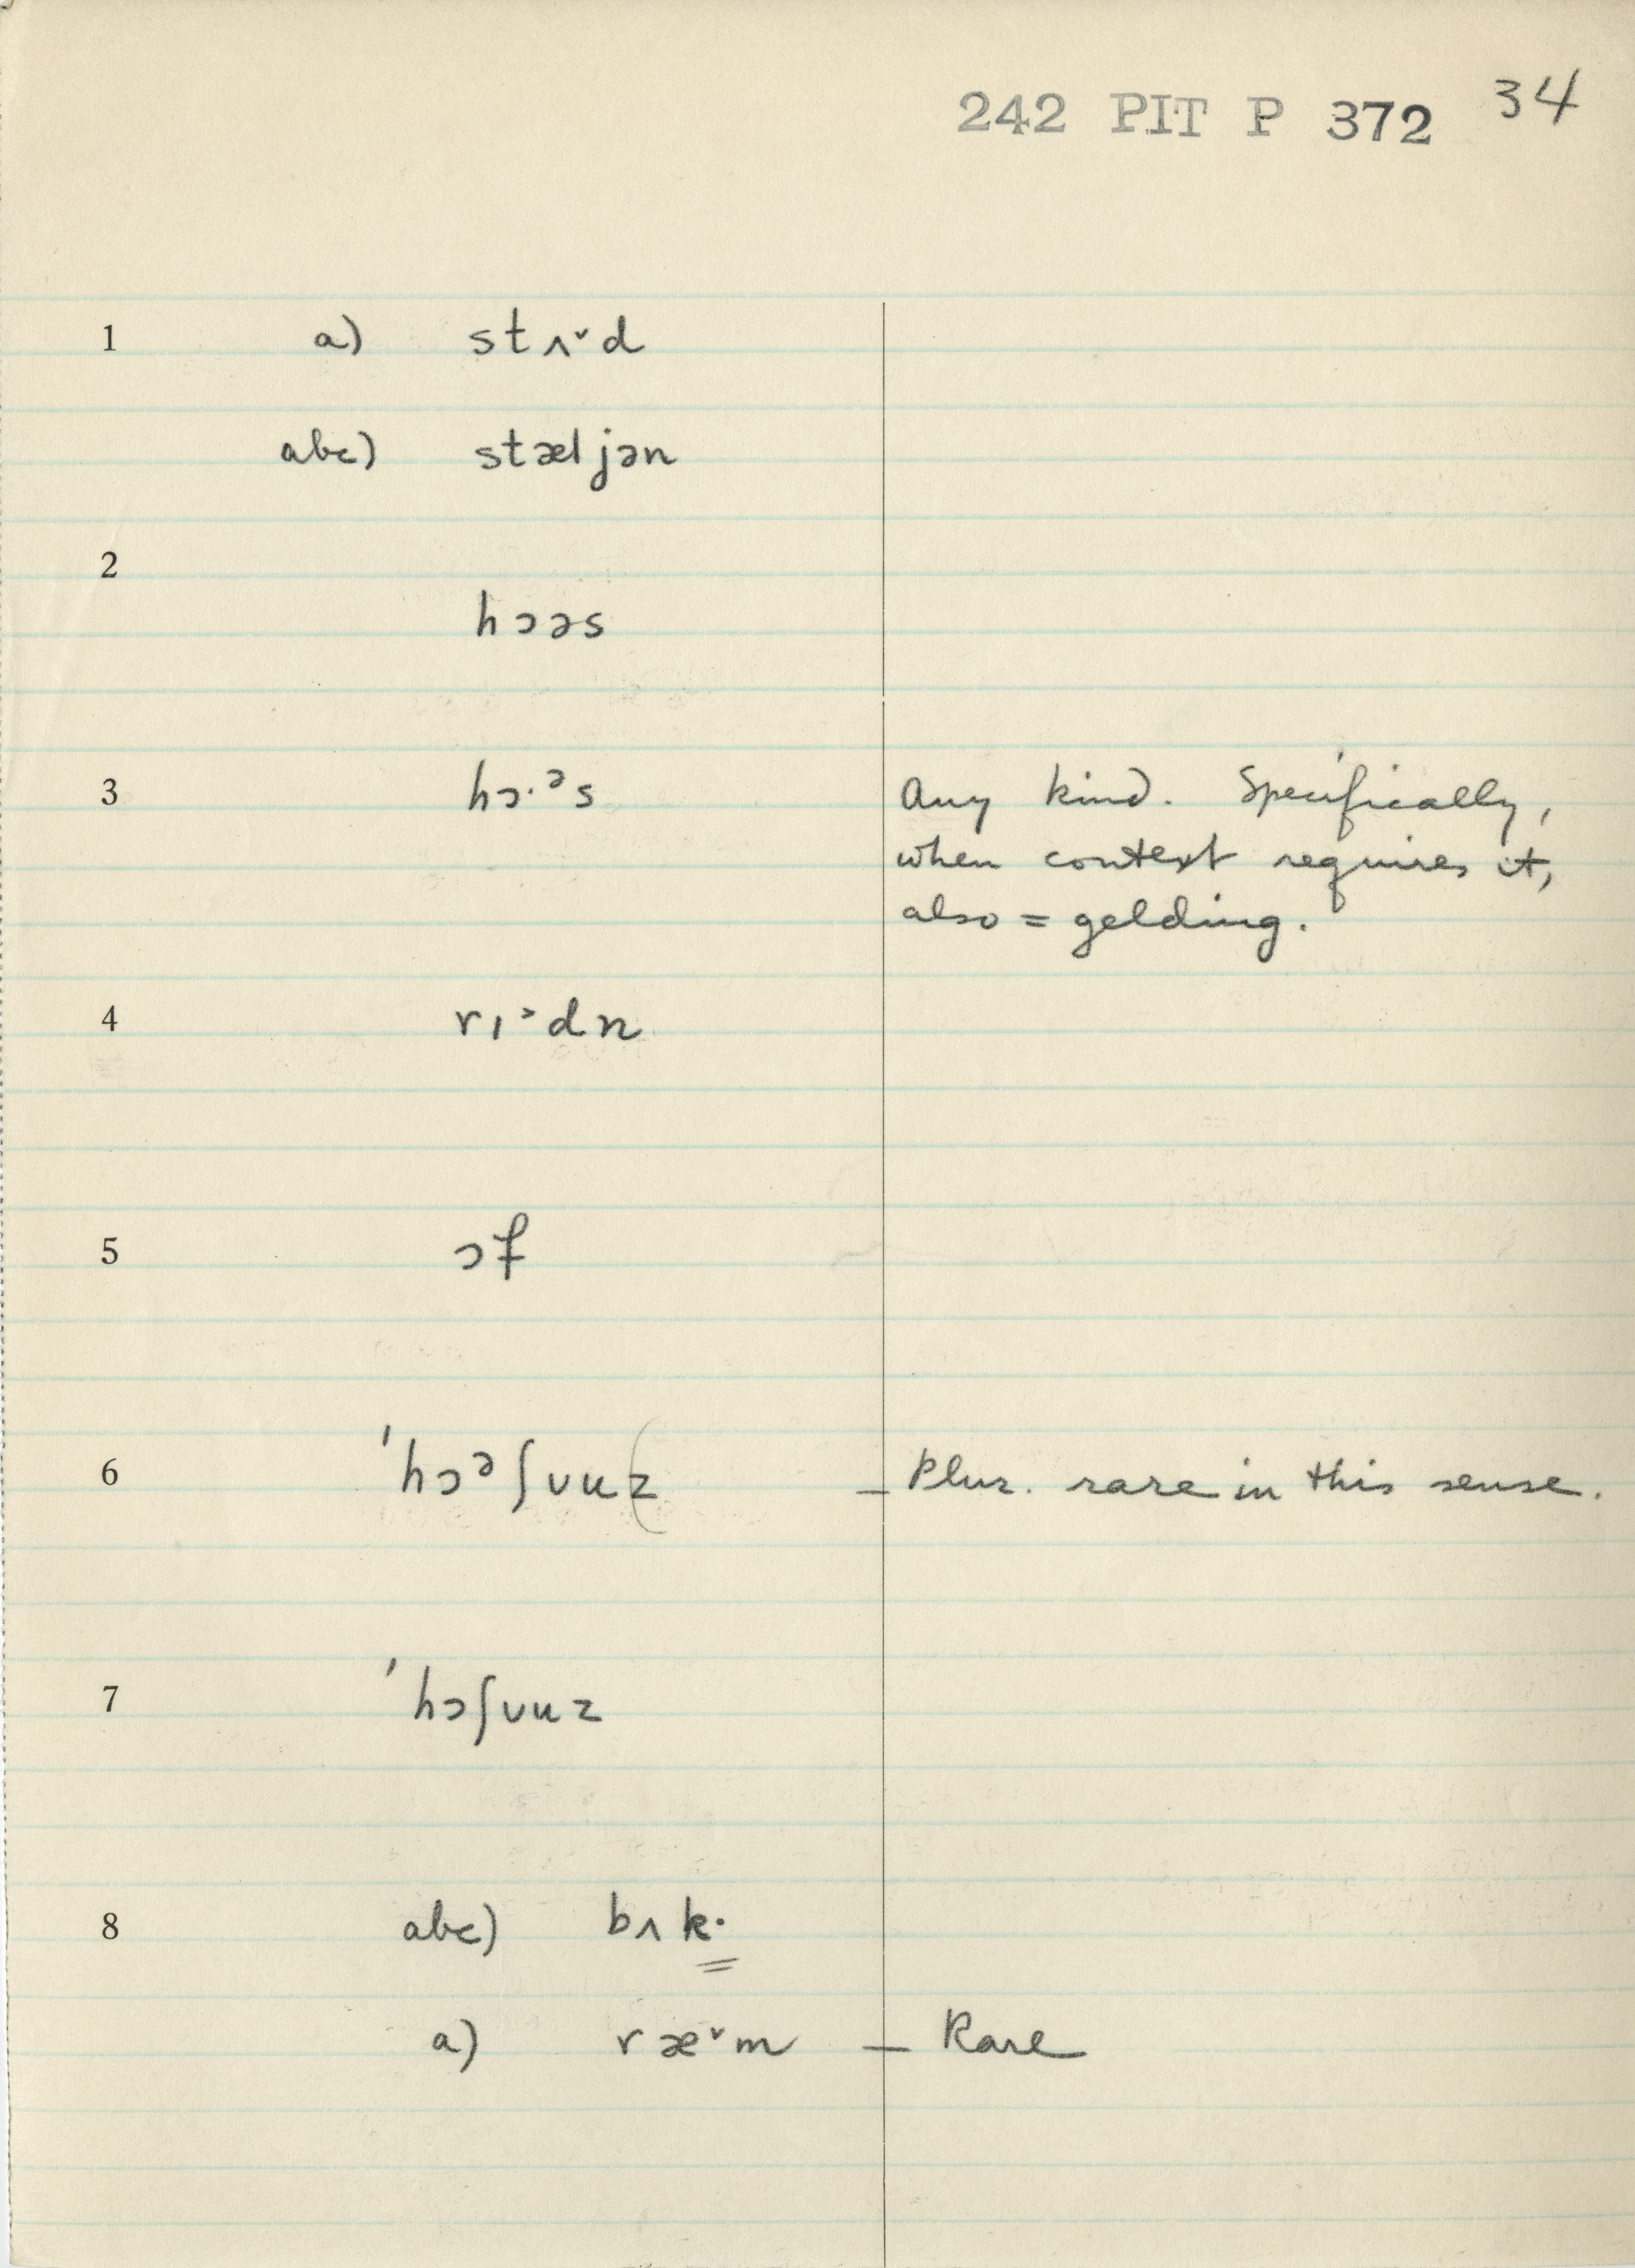 242 PIT P 372 34
1 a) stʌ˅d
abc) stæljən
2
hɔəs
3 hɔ·ᵊs Any kind. Specifically,
when context requires it,
also = gelding.
4 rɪ˃dn
5 ɔf
6 ˈhɔᵊʃuuz — Plur. rare in this sense.
7 ˈhɔʃuuz
8 abc) bʌk·
a) ræ˅m — Rare